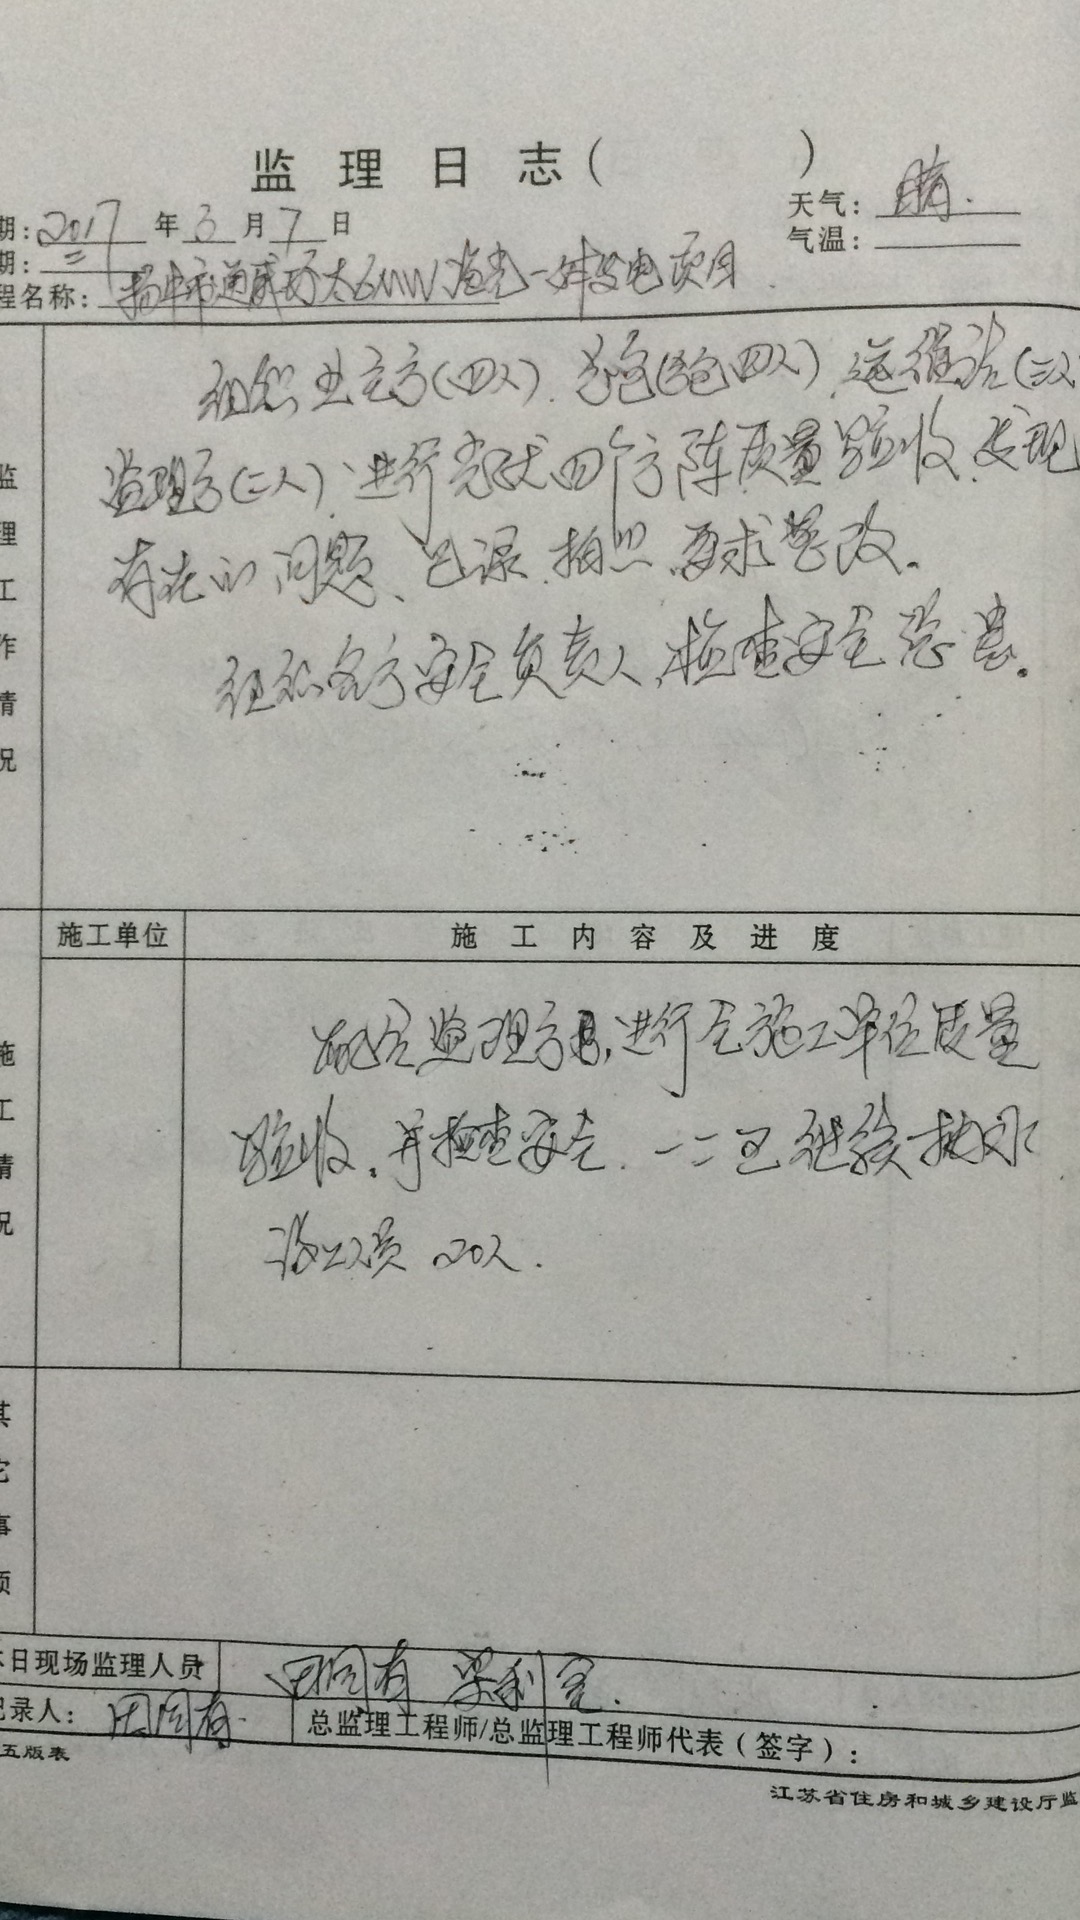 监 理 日 志 ( )
天气: 晴.
期: 2017 年 3 月 7 日
气温:
期: 二
程名称: 扬中市通威 6MW渔光一体发电项目
组织业主方(四人)、总包(总包四人)、运维站(二人
监理方(二人)、进行光伏四个方阵质量验收、发现
存在的问题、记录、拍照、要求整改。
组织各方安全负责人、检查安全
监理工作情况
施工单位
施 工 内 容 及 进 度
配合监理方,进行全施工单位质量
验收。并检查安全. 一二区继续抽水
施工人员 20人.
施工情况
其它事项
本日现场监理人员
田同有 梁利
记录人: 田同有.
总监理工程师/总监理工程师代表(签字):
五版表
江苏省住房和城乡建设厅监